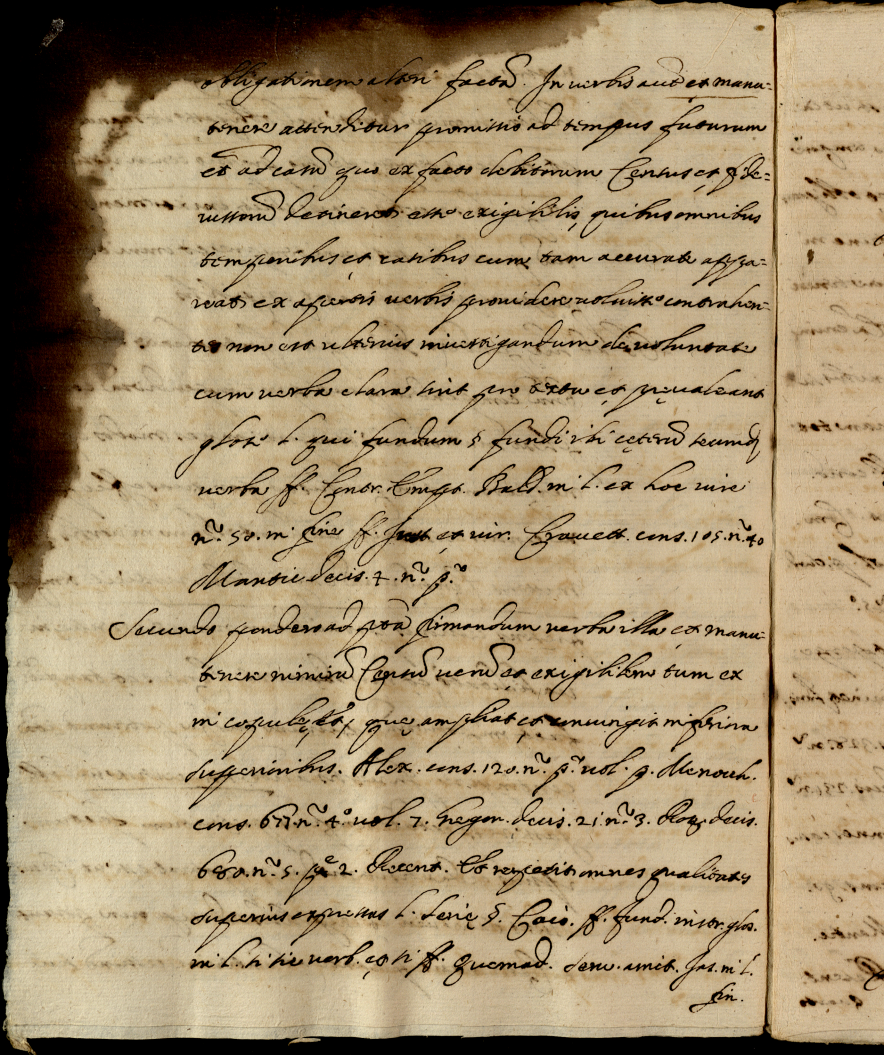 obligationem alteri factā. In verbis aut̄ et manu=
tenere attenditur promissio ad tempus futurum
et ad casū quo ex facto debitorum Census et fide=
iussorū desineret esse exigibilis, quibus omnibus
temporibus et casibus cum tam accurate appa=
reat ex apertis verbis providere voluisse contrahen=
tes non est ulterius investigandum de voluntate
cum verba clara sint pro textu et prevaleant
glos. l. qui fundum § fundi
verba ff. Contr. Empt. Bald. in l. ex hoc iure
nº. 50. in fine ff. Just. et iur. Cravett. cons. 105. nº. 40
Mantic. decis. 4. nº. pº.
Secundo pondero ad firmandum verba illa, et manu=
tenere nimirū Censū verū et exigibilem tum ex
in copulę Et, quę ampliat et coniungit inferiora
superioribus. Alex. cons. 120. nº. pº. vol. Menoch.
cons. 677. nº. 4º. vol. 7. Gregor. decis. 21. nº. 3. Rota decis.
680. nº. 5. pe. 2. Recent. Et repetit omnes qualitates
superius expressas l. Seię § Caio. ff. fund. instr. glos.
in l. si sic verb. et si ff. quemad. serv. amit. Jas. in l.
fin.